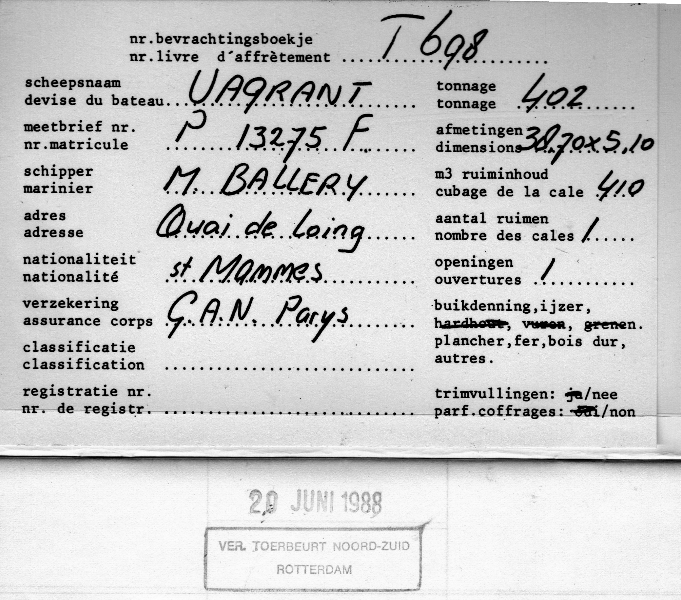 nr.bevrachtingsboekje
nr.livre d´affrètement T 698
scheepsnaam
devise du bateau VAGRANT
tonnage
tonnage 402
meetbrief nr.
nr.matricule P 13275 F
afmetingen
dimensions 38,70x5,10
schipper
marinier M. BALLERY
m3 ruiminhoud
cubage de la cale 410
adres
adresse Quai de Loing
aantal ruimen
nombre des cales 1
nationaliteit
nationalité st Mammes
openingen
ouvertures 1
verzekering
assurance corps G.A.N. Parys
buikdenning,ijzer,
hardhout, vuren, grenen.
plancher,fer,bois dur,
autres.
classificatie
classification
registratie nr.
nr. de registr.
trimvullingen: ja/nee
parf.coffrages: oui/non
20 JUNI 1988
VER. TOERBEURT NOORD-ZUID
ROTTERDAM